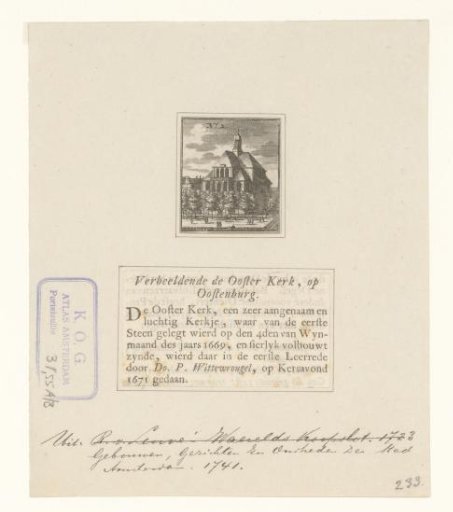 Verbeeldende de Ooster Kerk, op
Oostenburg.
De Ooster Kerk, een zeer aangenaam en
luchtig Kerkje, waar van de eerste
Steen gelegt wierd op den 4den van Wyn-
maand des jaars 1669, en sierlyk volbouwt
zynde, wierd daar in de eerste Leerrede
door Do. P. Wittewrongel, op Kersavond
1671 gedaan.
K. O. G.
ATLAS AMSTERDAM
Portefeuille
3/55A/B
Uit. 1723
Gebouwen, Gezichten En Oudheden Der Stad
Amsterdam. 1741.
233.